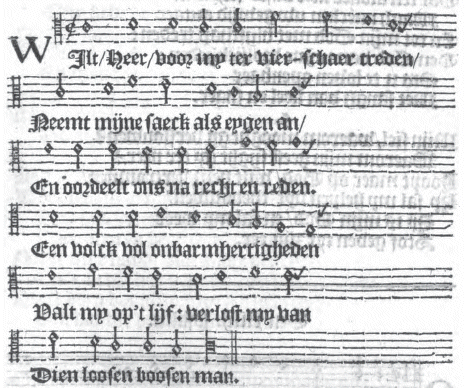 Wilt/Heer/voor my ter vier-schaer treden/
Neemt mijne saeck als eygen an/
En oordeelt ons na recht en reden.
Een volck vol onbarmhertigheden
Valt my op't lijf: verlost my van
Dien loosen boosen man.